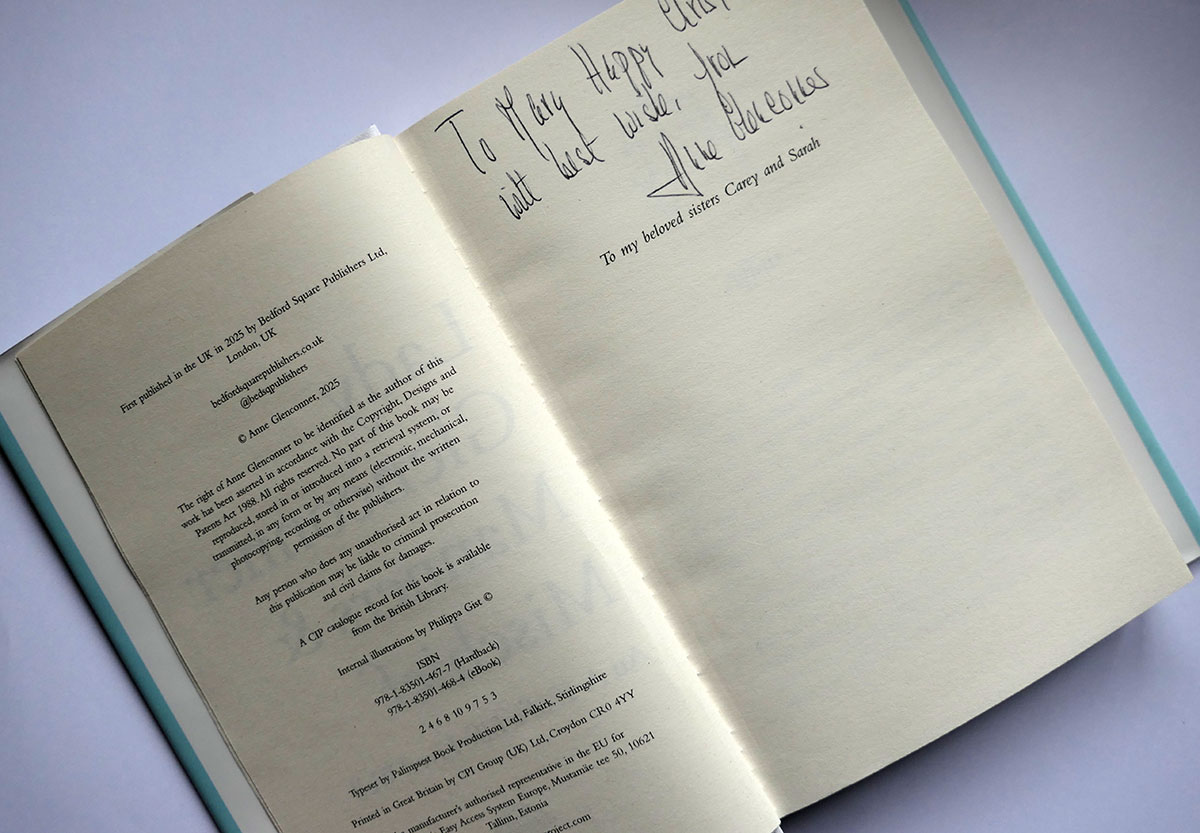 First published in the UK in 2025 by Bedford Square Publishers Ltd,
London, UK
bedfordsquarepublishers.co.uk
@bedsqpublishers
© Anne Glenconner, 2025
The right of Anne Glenconner to be identified as the author of this
work has been asserted in accordance with the Copyright, Designs and
Patents Act 1988. All rights reserved. No part of this book may be
reproduced, stored in or introduced into a retrieval system, or
transmitted, in any form or by any means (electronic, mechanical,
photocopying, recording or otherwise) without the written
permission of the publishers.
Any person who does any unauthorised act in relation to
this publication may be liable to criminal prosecution
and civil claims for damages.
A CIP catalogue record for this book is available
from the British Library.
Internal illustrations by Philippa Gist ©
ISBN
978-1-83501-467-7 (Hardback)
978-1-83501-468-4 (eBook)
2 4 6 8 10 9 7 5 3
Typeset by Palimpsest Book Production Ltd, Falkirk, Stirlingshire
Printed in Great Britain by CPI Group (UK) Ltd, Croydon CR0 4YY
manufacturer's authorised representative in the EU for
Easy Access System Europe, Mustamäe tee 50, 10621
Tallinn, Estonia
To Mary Happy
with best wishes from
Anne Glenconner
To my beloved sisters Carey and Sarah